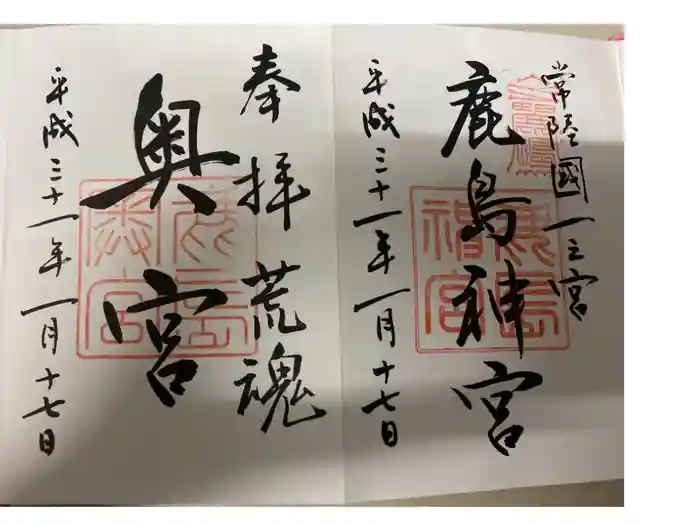 常陸國一之宮
鹿島神宮
平成三十一年一月十七日
奉拝 荒魂
奥宮
平成三十一年一月十七日
鹿島神宮
鹿島奥宮